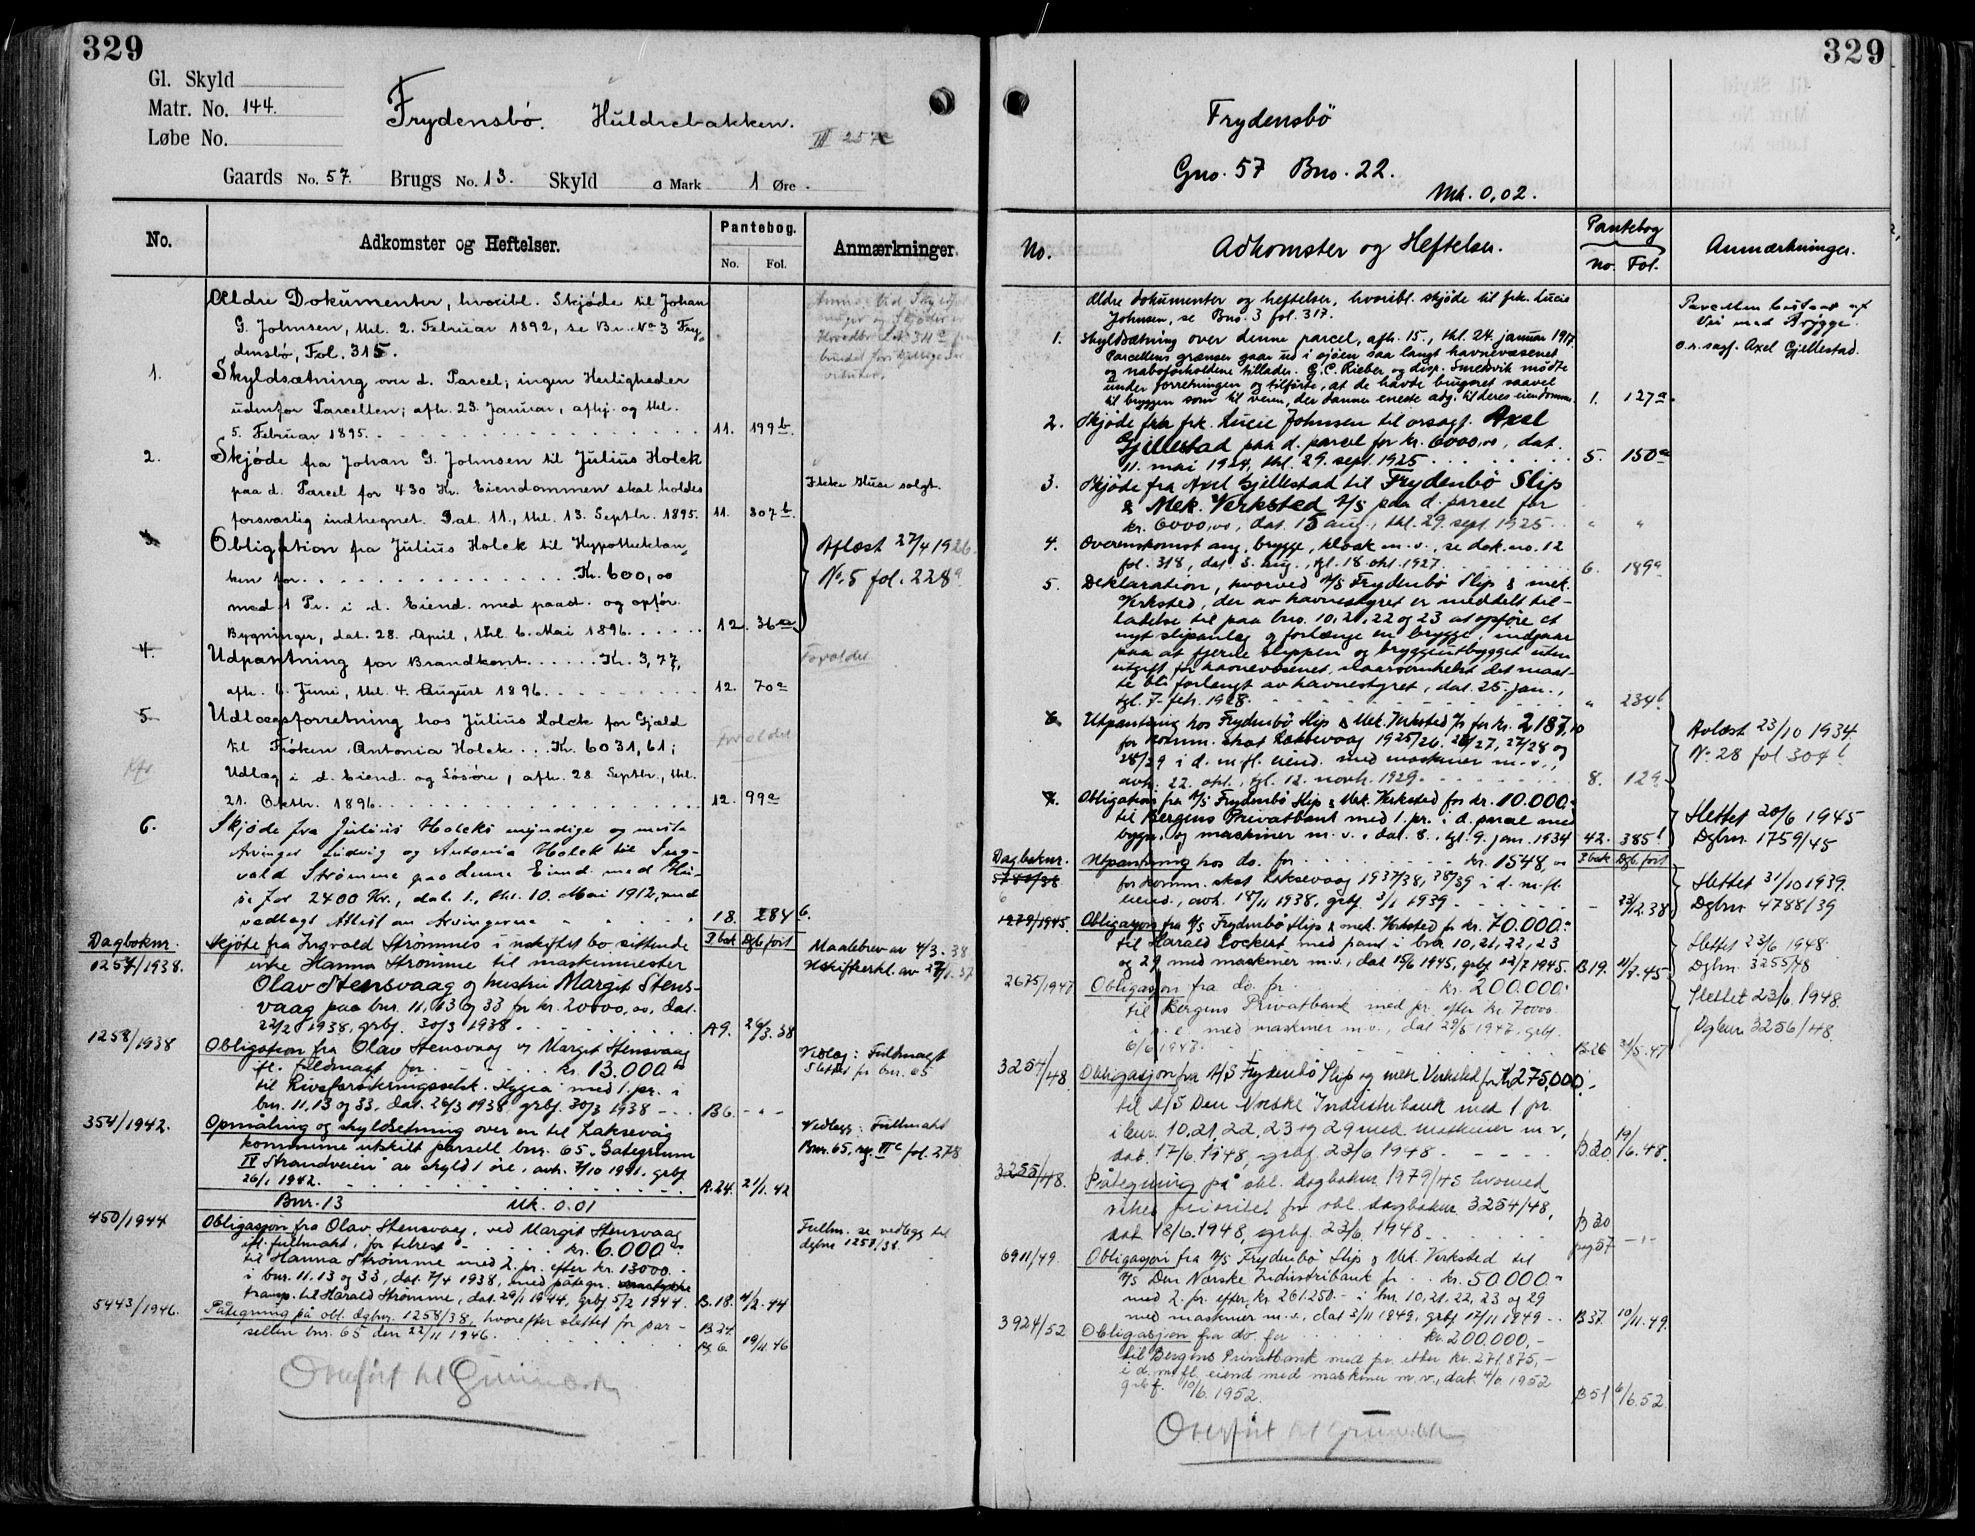 329
Gl. Skyld
Matr. No. 144.
Løbe No.
Frydensbö. Huldrebakken.
III 257c
Gaards No. 57. Brugs No. 13. Skyld 0 Mark 1 Øre.
No.
Adkomster og Heftelser.
Pantebog.
No. Fol.
Anmærkninger.
Ældre Dokumenter, hvoribl. Skjøde til Johan
G. Johnsen, thl. 2. Februar 1892, se Br. No 3 Fry-
densbö, Fol. 315.
1. Skyldsætning over d. Parcel; ingen Herligheder
udenfor Parcellen; afh. 23. Januar, afhj. og thl.
5. Februar 1895. 11. 199b.
2. Skjøde fra Johan G. Johnsen til Julius Holck
paa d. Parcel for 430 Kr. Eiendommen skal holdes
forsvarlig indhegnet. Dat. 11., thl. 13. Septbr. 1895. 11. 307b.
Ikke Huse solgt.
3. Obligation fra Julius Holck til Hypothekban-
ken for Kr. 600,00
med 1 Pr. i d. Eiend. med paast. og opfør.
Bygninger, dat. 28. April, thl. 6. Mai 1896. 12. 36a
Aflæst 27/4 1926
No 5 fol. 228a
4. Udpantning for Brandkont. Kr. 3,77,
afh. 6. Juni, thl. 4. August 1896. 12. 70a
Forældet
5. Udlægsforretning hos Julius Holck for Gjæld
til Frøken Antonia Holck Kr. 6031,61;
Udlæg i d. Eiend. og Løsøre, afh. 28. Septbr., thl.
21. Oktbr. 1896. 12. 99a
forældet
6. Skjøde fra Julius Holcks myndige og
Arvinger Ludvig og Antonia Holck til Ing-
vald Strømme paa denne Eiend. med
for 2400 Kr., dat. 1., thl. 10. Mai 1912, med
vedlagt Attest om Arvingerne 18. 284b.
Dagboknr.
P.bok Dgb.ført
1257/1938. Skjøte fra Ingvald Strømmes i uskiftet bo sittende
enke Hanna Strømme til maskinmester
Olav Stensvaag og hustru Margit Stens-
vaag paa bnr. 11, 13 og 33 for kr. 20000,00, dat.
22/2 1938, grbf. 30/3 1938. A9. 26/3.38
Maalebrev av 4/3.38
Uskifteerkl. av
1258/1938 Obligation fra Olav Stensvaag og Margit Stensvaag
ifl. fuldmagt for kr. 13.000
til Livsforsikringsselsk. Hygea med 1. pr. i
bnr. 11, 13 og 33, dat. 26/3 1938, grbf. 30/3 1938 B6.
Vedlæg: Fuldmagt
Slettet for bnr. 65
354/1942. Opmåling og skyldsetning over en til Laksevåg
kommune utskilt parsell bnr. 65 "Gategrunn
IV Strandveien" av skyld 1 öre, avh. 7/10 1941, grbf
26/1 1942. A.24. 21/1.42
Vedlegg: Fullmakt
Bnr. 65, reg. IIc fol. 278
Bnr. 13 Mk. 0.01
450/1944 Obligasjon fra Olav Stensvaag, ved Margit Stensvaag
ifl. fullmakt, for tilrest kr. 6.000
til Hanna Strømme med 2. pr. efter kr. 13000.
i bnr. 11, 13 og 33, dat. 7/4 1938, med påtegn.
transp. til Harald Strømme, dat. 29/1 1944, grbf 5/2 1944. B.18. 4/2.44
Fullm. se vedlegg til
dgbnr 1258/38.
5443/1946. Påtegning på obl. dgbnr. 1258/38, hvorefter slettet for par-
sellen bnr. 65 den 22/11 1946. B.24. Pg. 6. 19/11.46
Overført til Grunnbok
329
Frydensbö
Gno. 57 Bno. 22.
Mk. 0,02.
No.
Adkomster og Heftelser.
Pantebog
No. Fol.
Anmærkninger.
Ældre dokumenter og heftelser, hvoribl. skjøde til frk. Lucie
Johnsen, se Bno. 3 fol. 317.
Parcellen bestaar af
Vei med Brygge.
o.r.sagf. Axel Gjellestad.
1. Skyldsætning over denne parcel, afh. 15., thl. 24. januar 1917
Parcellens grænser gaar ud i sjøen saa langt havnevæsenet
og naboforholdene tillader. G.C. Rieber og disp. Smedsvik mødte
under forretningen og tilførte, at de havde brugsret saavel
til bryggen som til veien, der danner eneste adg. til deres eiendomme. 1. 127a.
2. Skjøde fra frk. Lucie Johnsen til orsagf. Axel
Gjellestad paa d. parcel for kr. 6000,00, dat.
11. mai 1924, thl. 29. sept. 1925 5. 150a
3. Skjøde fra Axel Gjellestad til Frydenbø Slip
& Mek. Verksted A/S paa d. parcel for
kr. 6000,00, dat. 15 aug., thl. 29. sept. 1925 " "
4. Overenskomst ang. brygge, kloak m.v., se dok. no. 12
fol. 318, dat. 3. aug., tgl. 18. okt. 1927 6. 189a
5. Deklaration, hvorved A/S Frydenbø Slip & mek.
Verksted, der av havnestyret er meddelt til-
ladelse til paa bno. 10, 21, 22 og 23 at opføre et
nyt slipanlæg og forlænge en brygge, indgaar
paa at fjerne slippen og bryggeutbygget uten
utgift for havnevæsenet, naarsomhelst det maat-
te bli forlangt av havnestyret, dat. 25. jan.,
tgl. 7. febr. 1928. " 234b
6. Utpantning hos Frydenbø Slip & Mek. Verksted A/S for kr. 2187,10
for komm. skat Laksevaag 1925/26, 26/27, 27/28 og
28/29 i d. m. fl. eiend. med maskiner m.v.,
avh. 22. okt., tgl. 12. novbr. 1929. 8. 129
Avlæst 23/10 1934
No 28 fol 304b
7. Obligation fra A/S Frydenbø Slip & Mek. Verksted for kr. 10.000.-
til Bergens Privatbank med 1. pr. i d. parcel med
bygn. og maskiner m.v., dat. 8., tgl. 9. jan. 1934 42. 385b
Slettet 20/6 1945
Dgbnr. 1759/45
Dagboknr.
P.bok Dgb.ført
Utpantning hos do. for kr. 1548,00
for komm. skat Laksevaag 1937/38, 38/39 i d. m. fl.
eiend., avh. 18/11 1938, grbf. 3/1 1939
Slettet 31/10 1939.
Dgbnr 4788/39
1979/1945. Obligasjon fra A/S Frydenbø Slip & mek. Verksted for kr. 70.000.-
til Harald Lockert, med pant i bnr 10, 21, 22, 23
og 29 med maskiner m.v., dat 15/6 1945, grbf 12/7 1945. B19. 11/7.45
Slettet 23/6 1948.
Dgbnr. 3255/48
2675/1947 Obligasjon fra do. for kr. 200.000.-
til Bergens Privatbank med pr. efter kr. 70000
i s. e. med maskiner m.v., dat 29/5 1947, grbf.
6/6 1947. B.26 31/5.47
Slettet 23/6.1948
Dgbnr. 3256/48.
3254/48 Obligasjon fra A/S Frydenbø Slip og mek. Verksted for kr 275.000.-
til A/S Den Norske Industribank med 1 pr.
i bnr. 10, 21, 22, 23 og 29 med maskiner m.v,
dat. 17/6 1948, grbf. 23/6 1948 B.30. 19/6.48.
3255/48. Påtegning på obl. dagboknr. 1979/45 hvorved
vikes prioritet for obl. dagboknr. 3254/48,
dat 18/6.1948, grbf. 23/6 1948 B 30 pag 57
6911/49 Obligasjon fra A/S Frydenbø Slip & Mek. Verksted til
A/S Den Norske Industribank for kr. 50000.-
med 2. pr. efter kr. 261.250.- i bnr 10, 21, 22, 23 og 29
med maskiner m.v., dat 3/11 1949, grbf 17/11 1949 B37. 10/11.49.
3924/52 Obligasjon fra do. for kr. 200.000,-
til Bergens Privatbank med pr. etter kr. 271.875,-
i d. m. fl. eiend med maskiner m.v., dat. 4/6 1952
grbf. 10/6. 1952. B51 6/6.52.
Overført til Grunnbok